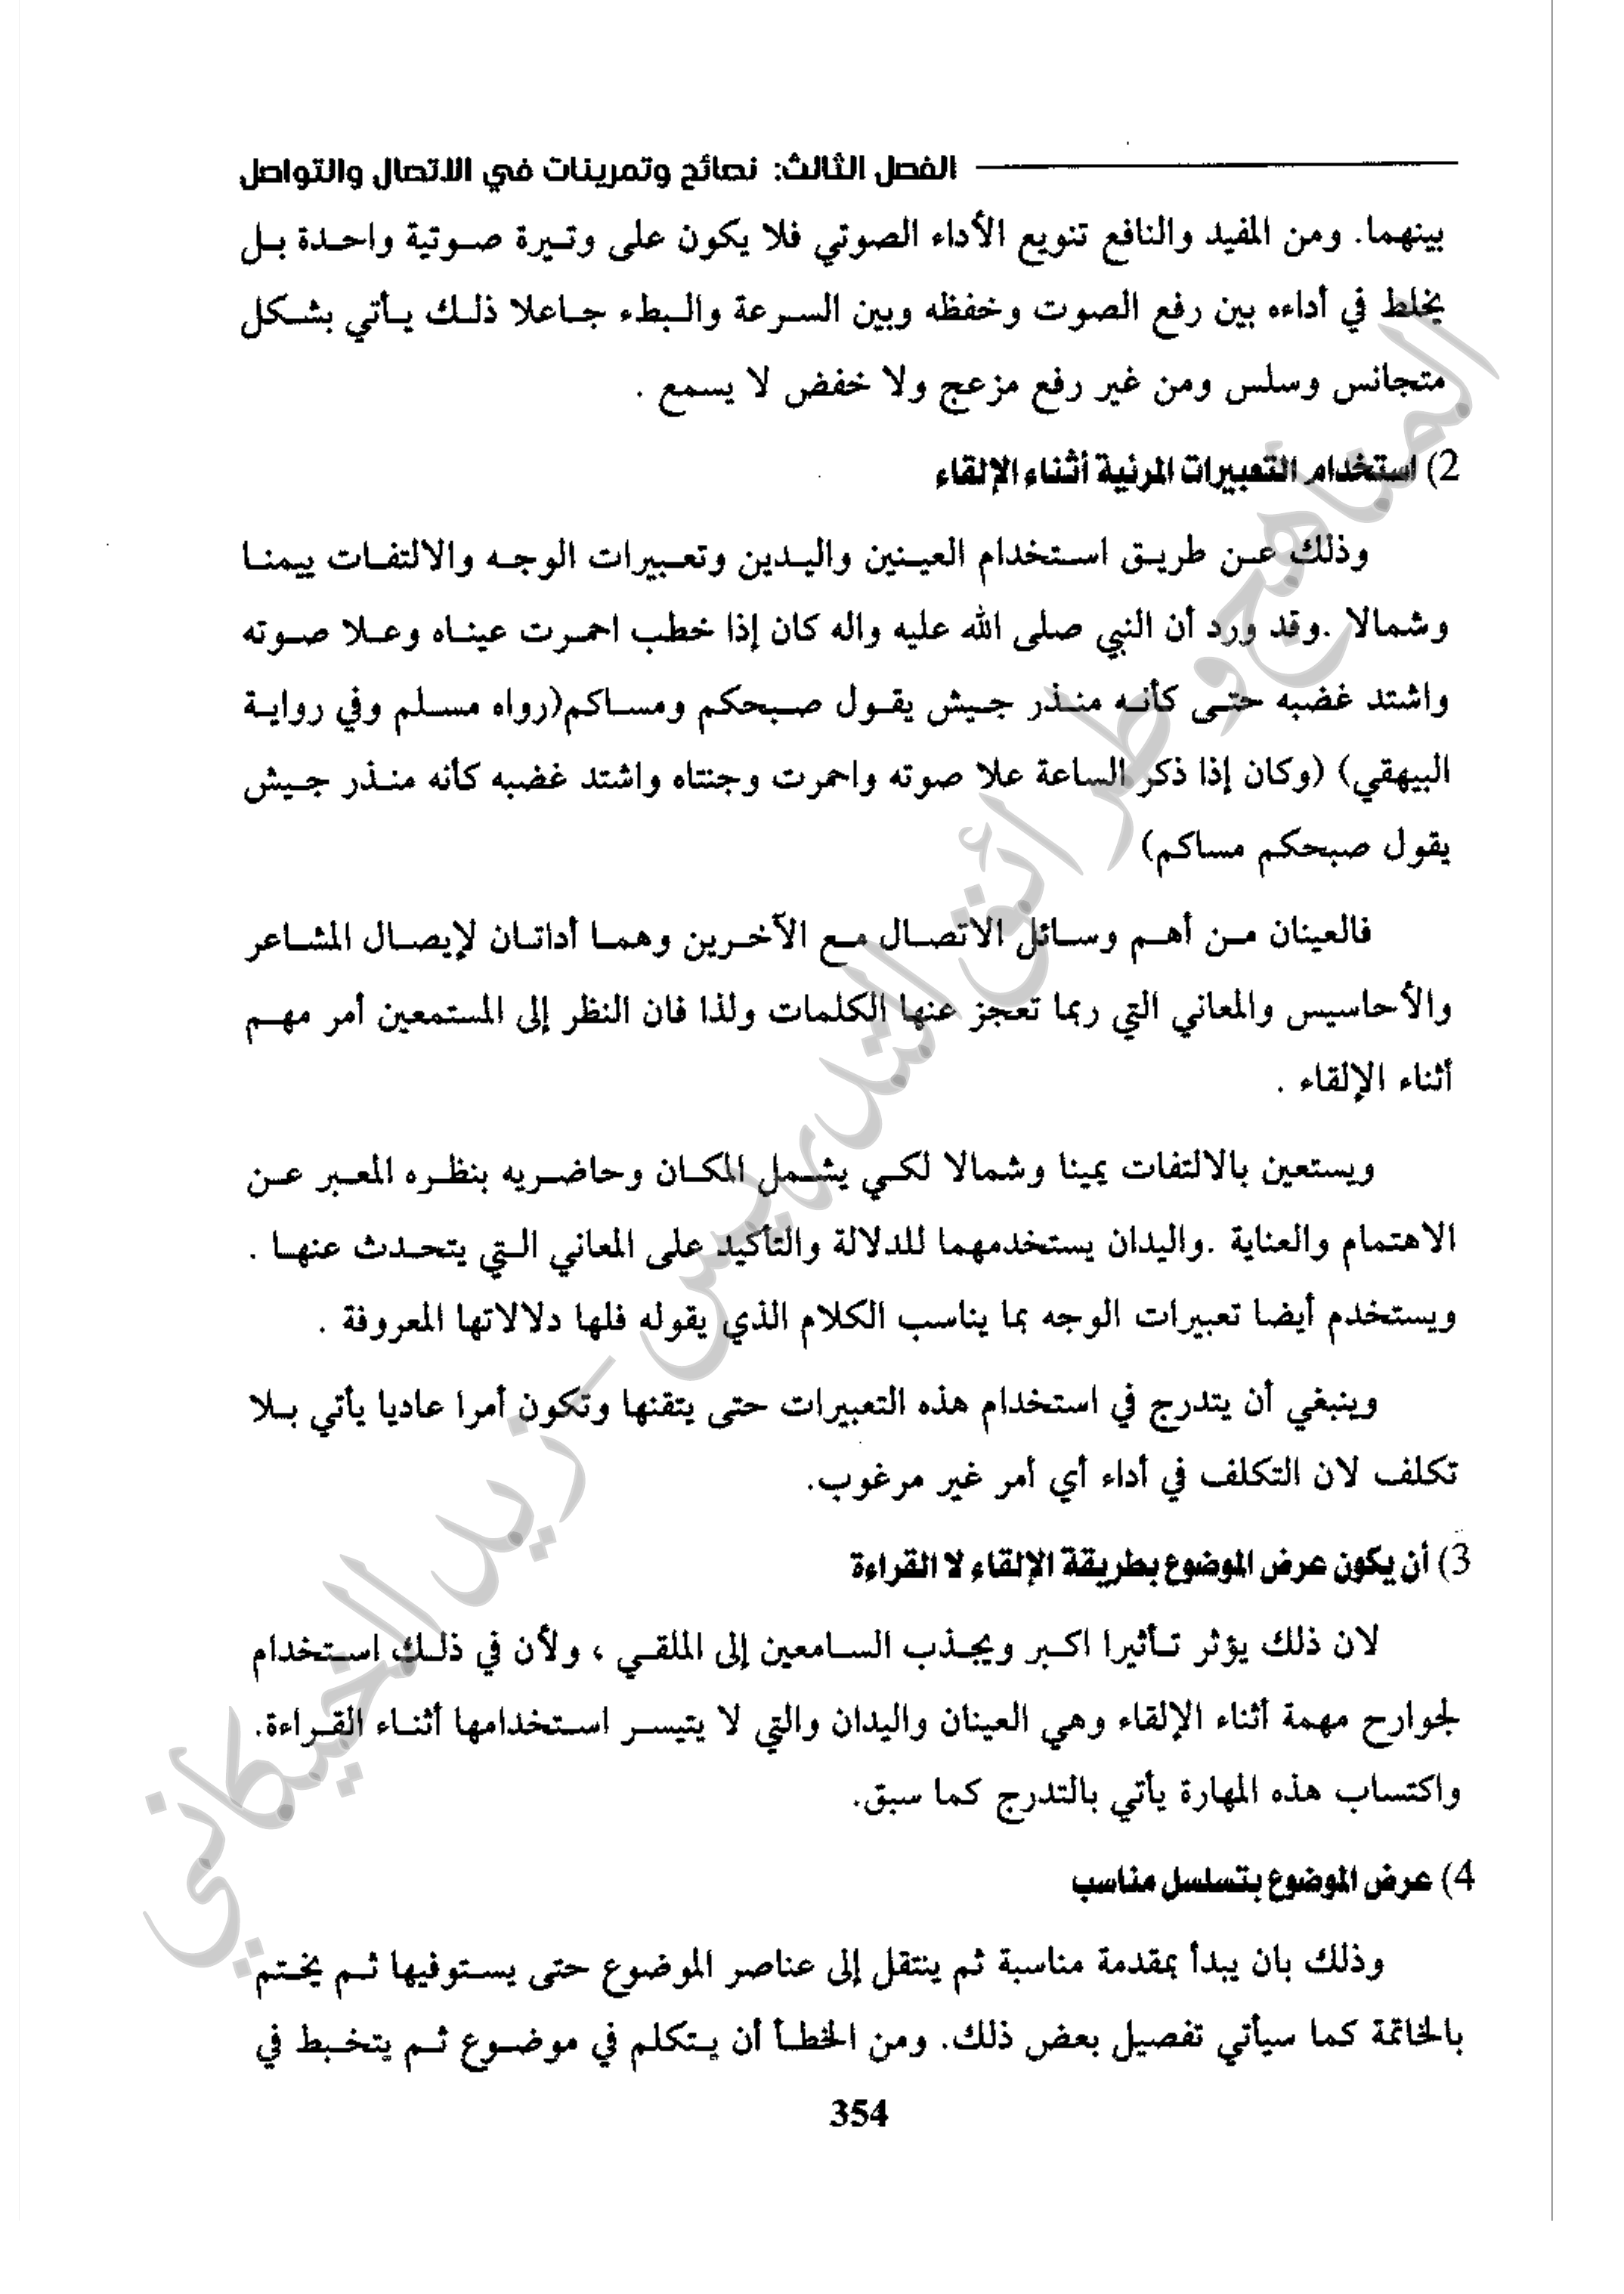 الفصل الثالث: نصائح وتمرينات في الاتصال والتواصل
بينهما. ومن المفيد والنافع تنويع الأداء الصوتي فلا يكون على وتيرة صوتية واحدة بل
يخلط في أداءه بين رفع الصوت وخفظه وبين السرعة والبطء جاعلا ذلك يأتي بشكل
متجانس وسلس ومن غير رفع مزعج ولا خفض لا يسمع .
2) استخدام التعبيرات المرئية أثناء الإلقاء
وذلك عن طريق استخدام العينين واليدين وتعبيرات الوجه والالتفات ييمنا
وشمالا .وقد ورد أن النبي صلى الله عليه واله كان إذا خطب احمرت عيناه وعلا صوته
واشتد غضبه حتى كأنه منذر جيش يقول صبحكم ومساكم(رواه مسلم وفي رواية
البيهقي) (وكان إذا ذكر الساعة علا صوته واحمرت وجنتاه واشتد غضبه كأنه منذر جيش
يقول صبحكم مساكم)
فالعينان من أهم وسائل الاتصال مع الآخرين وهما أداتان لإيصال المشاعر
والأحاسيس والمعاني التي ربما تعجز عنها الكلمات ولذا فان النظر إلى المستمعين أمر مهم
أثناء الإلقاء .
ويستعين بالالتفات يمينا وشمالا لكي يشمل المكان وحاضريه بنظره المعبر عن
الاهتمام والعناية .واليدان يستخدمهما للدلالة والتأكيد على المعاني التي يتحدث عنها .
ويستخدم أيضا تعبيرات الوجه بما يناسب الكلام الذي يقوله فلها دلالاتها المعروفة .
وينبغي أن يتدرج في استخدام هذه التعبيرات حتى يتقنها وتكون أمرا عاديا يأتي بلا
تكلف لان التكلف في أداء أي أمر غير مرغوب.
3) أن يكون عرض الموضوع بطريقة الإلقاء لا القراءة
لان ذلك يؤثر تأثيرا اكبر ويجذب السامعين إلى الملقي ، ولأن في ذلك استخدام
لجوارح مهمة أثناء الإلقاء وهي العينان واليدان والتي لا يتيسر استخدامها أثناء القراءة.
واكتساب هذه المهارة يأتي بالتدرج كما سبق.
4) عرض الموضوع بتسلسل مناسب
وذلك بان يبدأ بمقدمة مناسبة ثم ينتقل إلى عناصر الموضوع حتى يستوفيها ثم يختم
بالخاتمة كما سيأتي تفصيل بعض ذلك. ومن الخطأ أن يتكلم في موضوع ثم يتخبط في
354
المناهج وطرائق التدريس - زيد الخيكاني